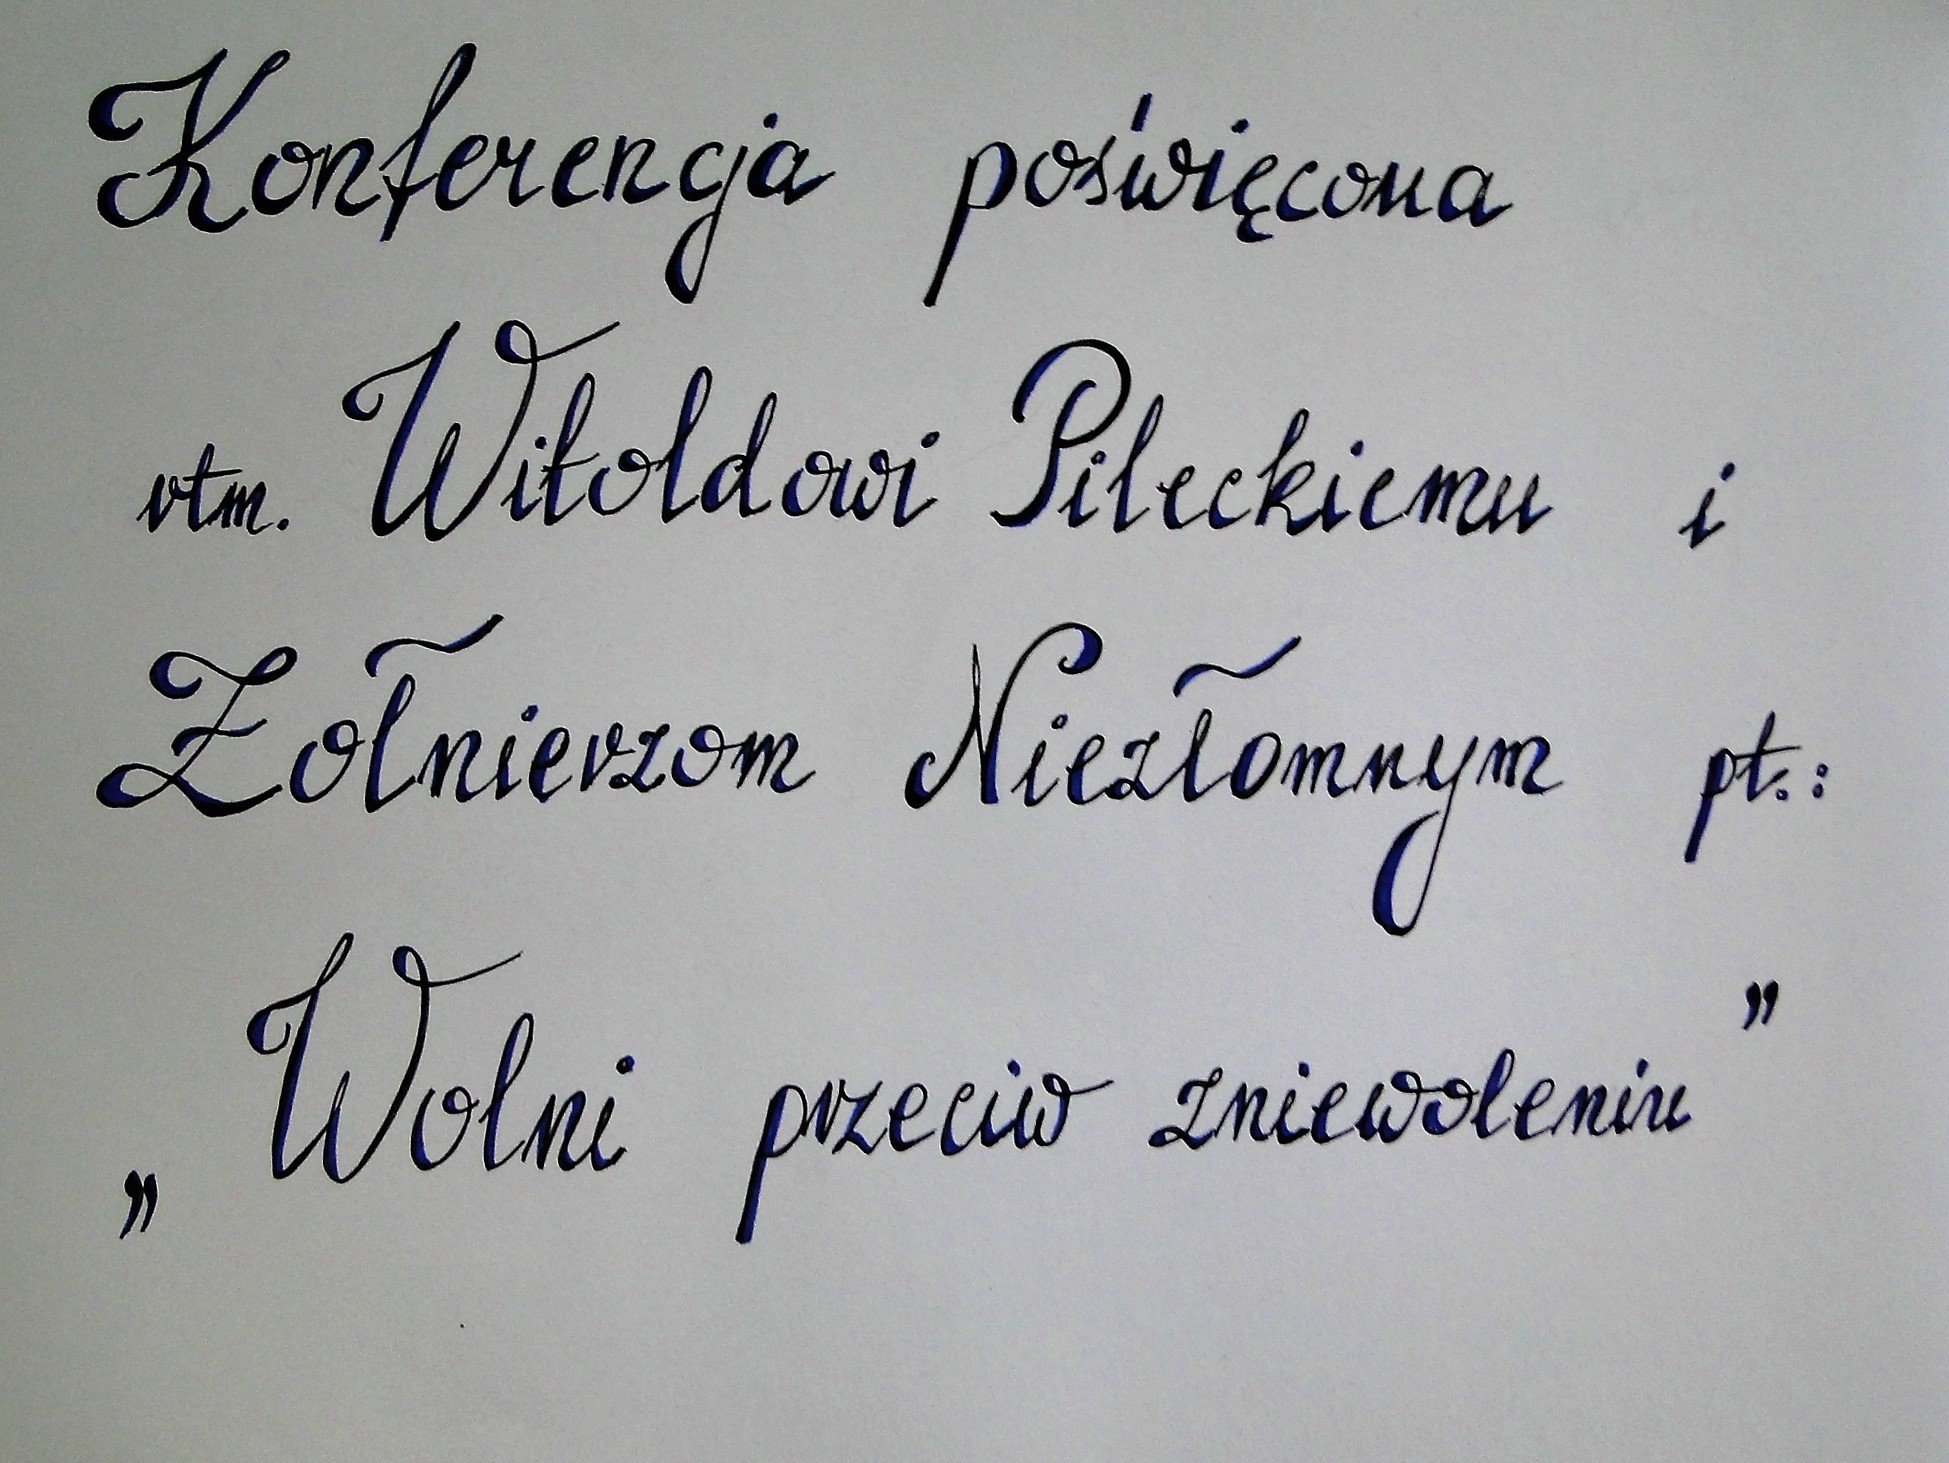 Konferencja poświęcona
rtm. Witoldowi Pileckiemu i
Żołnierzom Niezłomnym pt.:
„Wolni przeciw zniewoleniu”